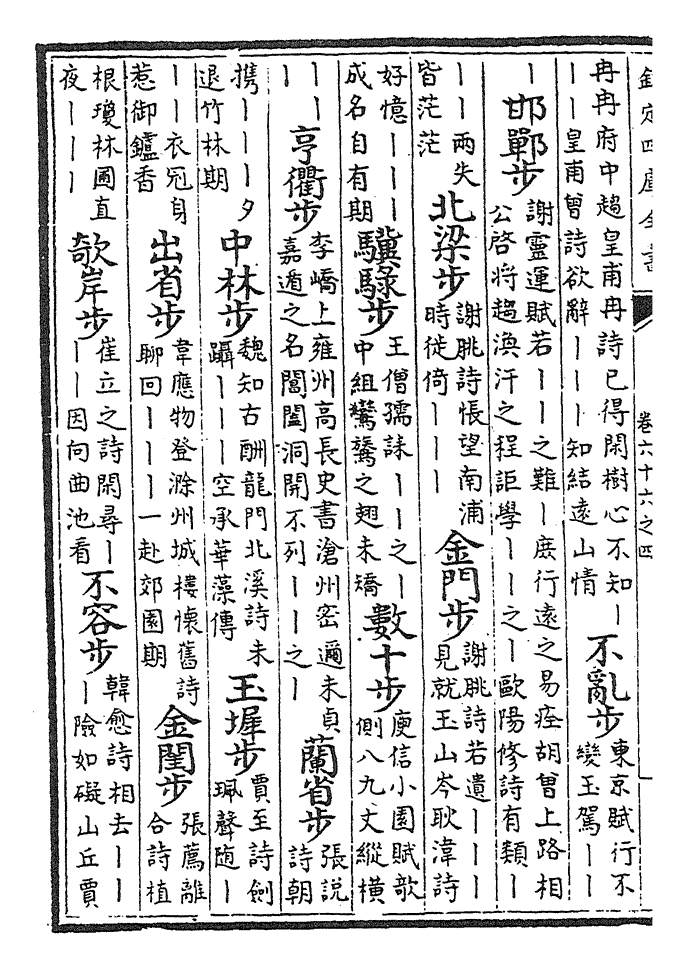 欽定四庫全書 卷六十六之四
冉冉府中趨皇甫冉詩已得閑樹心不知丨
丨丨皇甫曾詩欲辭丨丨丨知結遠山情
不亂步
東京賦行不
變玉駕丨丨
丨
邯鄲步
謝靈運賦若丨丨之難丨庶行遠之易痊胡曾上路相
公啓將趨渙汗之程詎學丨丨之丨歐陽修詩有類丨
丨丨兩失
皆茫茫
北梁步
謝朓詩悵望南浦
時徙倚丨丨丨
金門步
謝朓詩若遺丨丨丨
見就玉山岑耿湋詩
好憶丨丨丨
成名自有期
驥騄步
王僧孺誄丨丨之丨
中組鸞騫之翅未矯
數十步
庾信小園賦欹
側八九丈縱橫
丨丨
丨
亨衢步
李嶠上雍州高長史書滄州密邇未貞
嘉遁之名閶闔洞開不列丨丨之丨
蘭省步
張説
詩朝
携丨丨丨夕
退竹林期
中林步
魏知古酬龍門北溪詩未
躡丨丨丨空承華藻傳
玉墀步
賈至詩劍
珮聲随丨
丨丨衣冠身
惹御鑪香
出省步
韋應物登滁州城樓懷舊詩
聊回丨丨丨一赴郊園期
金閨步
張薦離
合詩植
根瓊林圃直
夜丨丨丨
欹岸步
崔立之詩閑尋丨
丨丨因向曲池看
不容步
韓愈詩相去丨丨
丨險如礙山丘賈